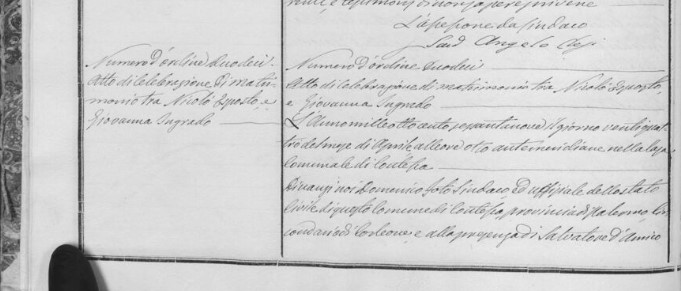 L'assessore da Sindaco
Numero d'ordine duodeci
Atto di celebrazione di matri-
monio tra Nicolò Esposto, e
Giovanna Ingrado
Numero d'ordine duodeci
Atto di celebrazione di matrimonio tra Nicolò Esposto
e Giovanna Ingrado
L'Anno mille otto cento settantanove il giorno ventiquat
tro del mese di Aprile alle ore otto antemeridiane nella Casa
Comunale di Contessa
Dinanzi noi Domenico Sindaco ed uffiziale dello stato
Civile di questo Comune di Contessa, provincia di Palermo, Cir
condario di Corleone, e alla presenza di Salvatore D'Amico